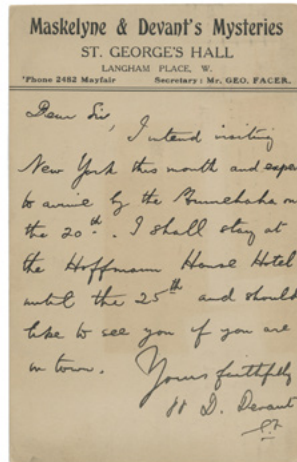 Maskelyne & Devant's Mysteries
ST. GEORGE'S HALL
LANGHAM PLACE, W.
'Phone 2482 Mayfair Secretary: Mr. GEO. FACER.
Dear Sir,
I intend visiting
New York this month and expec
to arrive by the Minnehaha on
the 20th. I shall stay at
the Hoffmann House Hotel
until the 25th and should
like to see you if you are
in town.
Yours faithfully
pp D. Devant